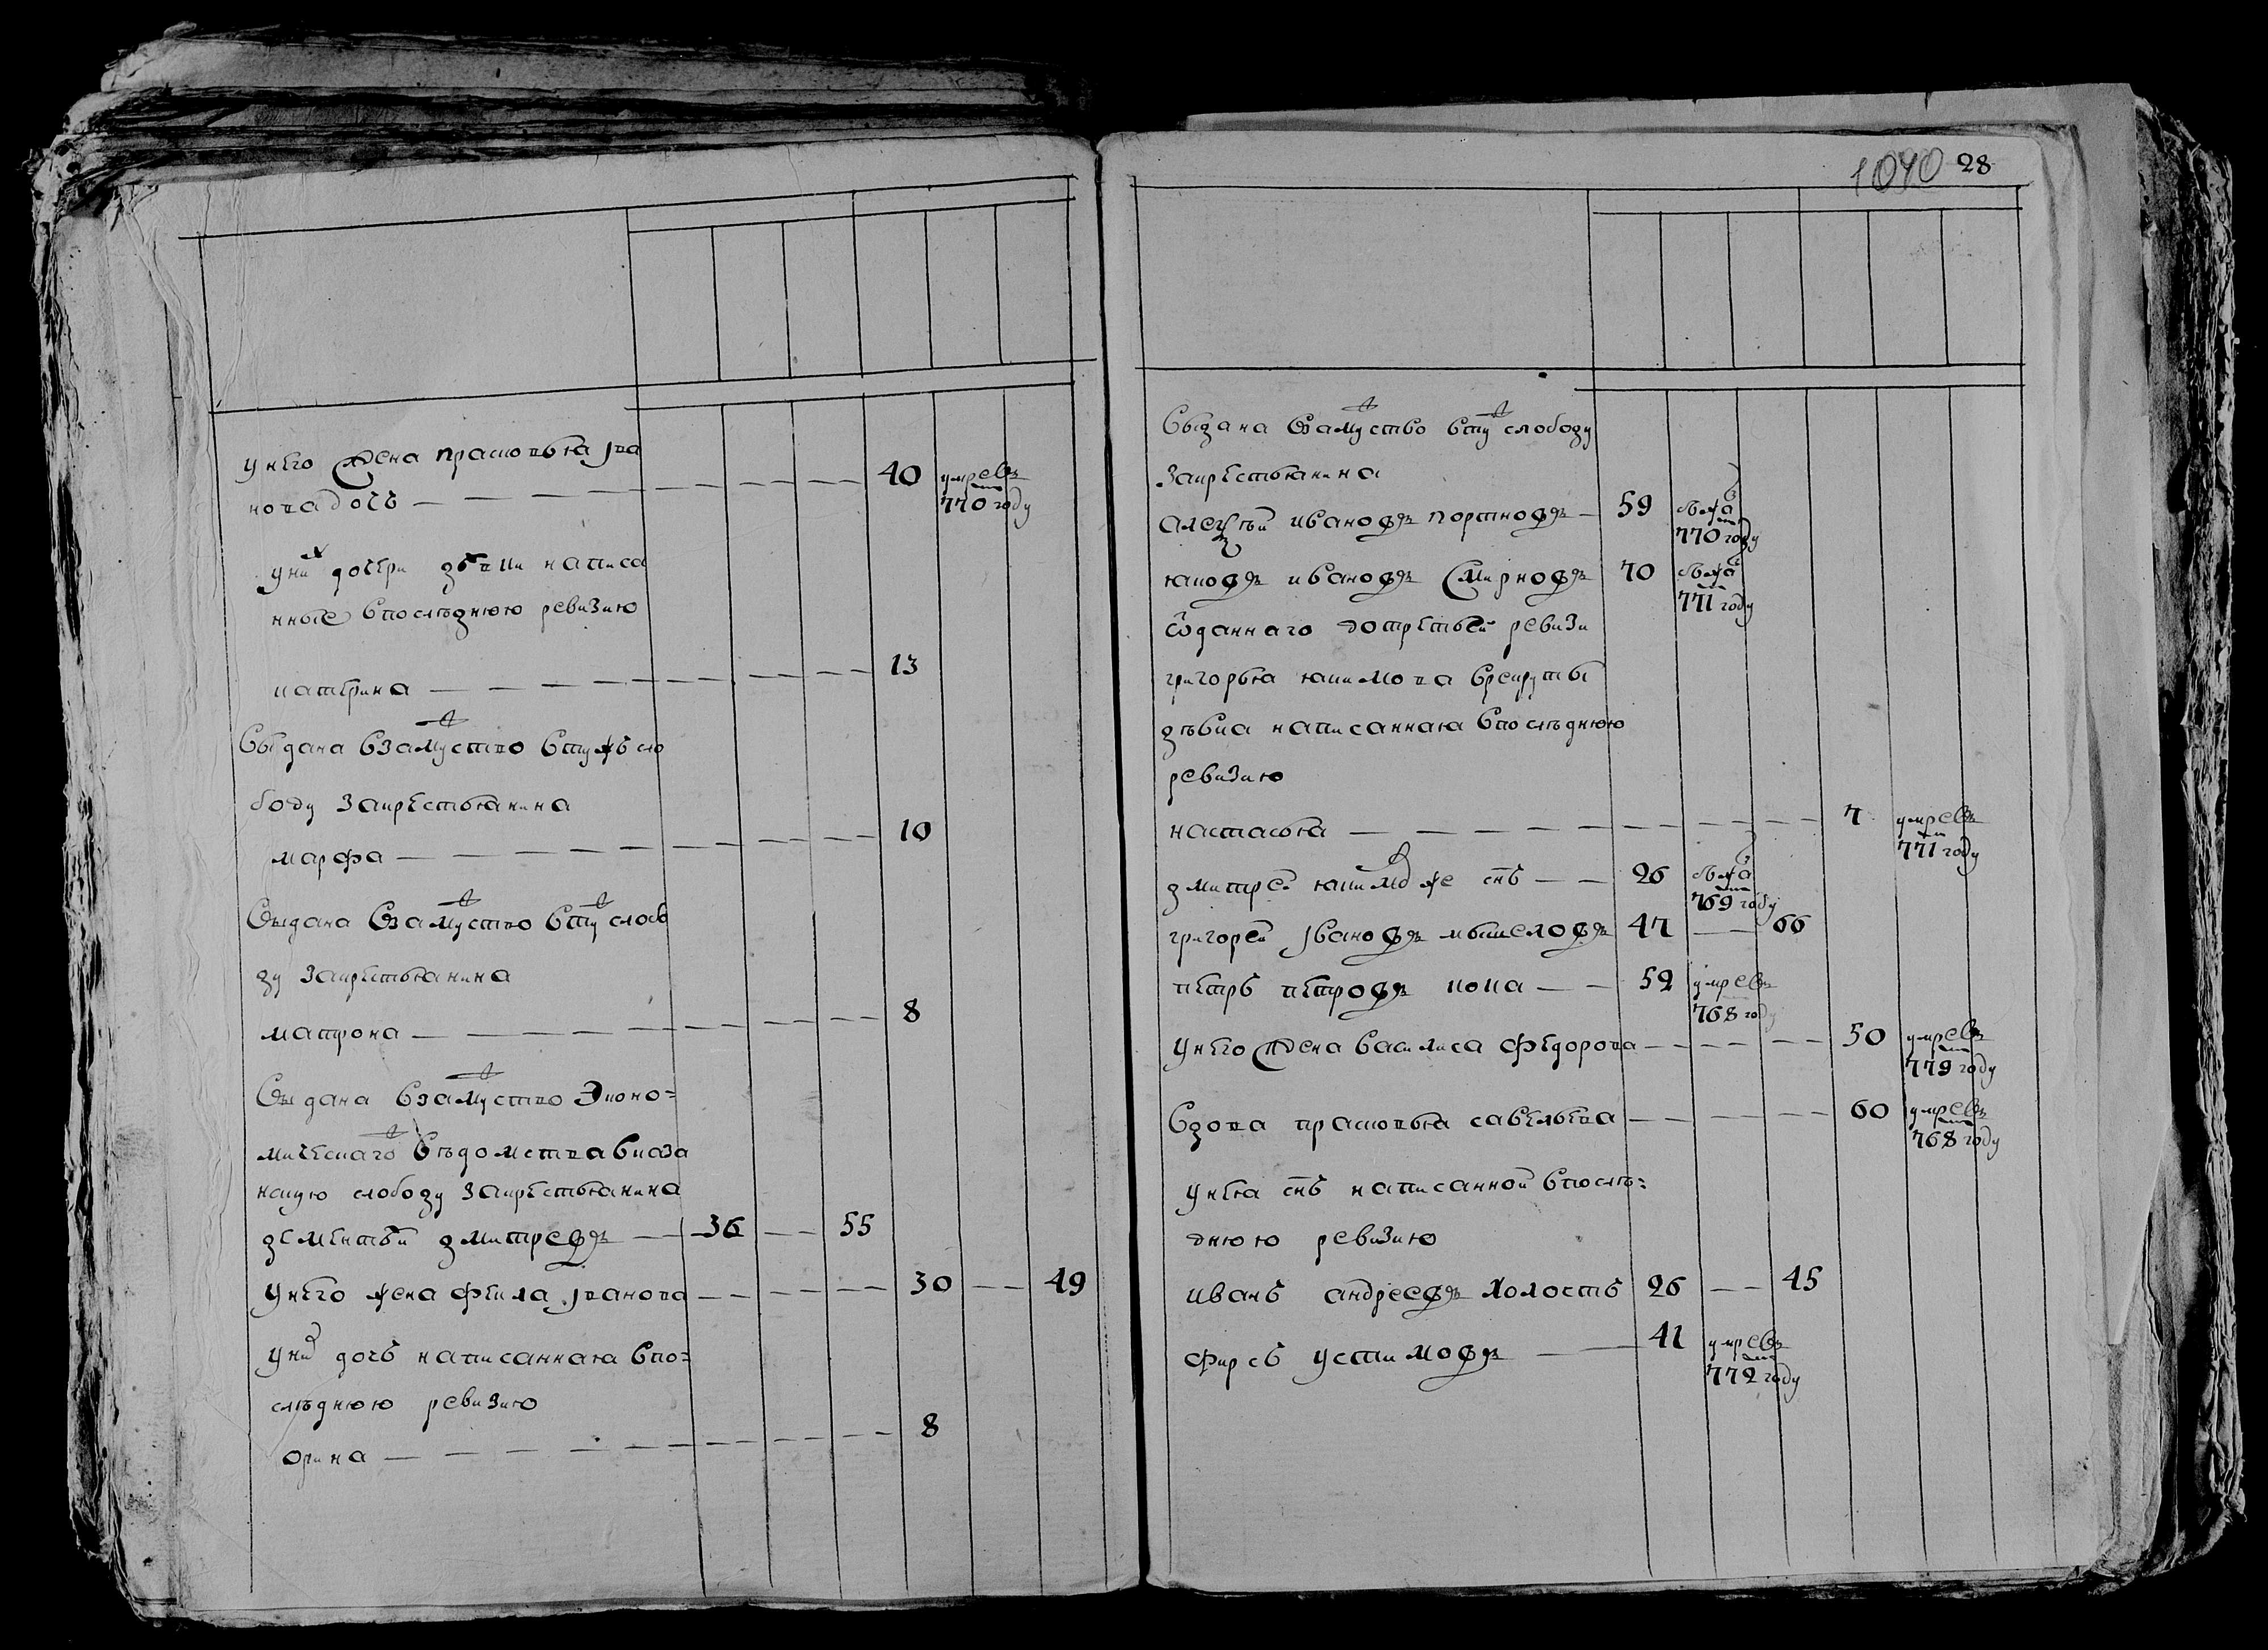 у него жена прасковья ива
нова дочь — 40 умре в
770 году
у них дочери девки написа
нные в последнюю ревизию
катерина — 13
выдана взамуство в туж сло
боду за крестьянина
марфа — 10
выдана взамуство в ту слобо
ду за крестьянина
матрона — 8
выдана взамуство эконо=
мического ведомства в каза
нскую слободу за крестьянина
дементей дмитреев — 36 — 55
у него жена фекла иванова — 30 — 49
у них дочь написанная в по=
следнюю ревизию
орина — 8
1040 28
выдана взамуство в ту слободу
за крестьянина
алексей иванов портнов — 59 бежал
770 году
яков иванов смирнов 70 бежал
771 году
отданного до третьей ревизи
григорья якимова в рекруты
девка написанная в последнюю
ревизию
настасья — 7 умре в
771 году
дмитрей якимов же снъ — 26 бежал
769 году
григорей иванов мышелов 47 — 66
петръ петров кока — 52 умре в
768 году
у него жена василиса федорова — 50 умре в
779 году
вдова прасковья савельева — 60 умре в
768 году
у нея снъ написанной в после=
днюю ревизию
иванъ андреев холостъ 26 — 45
фирсъ устимов — 41 умре в
772 году